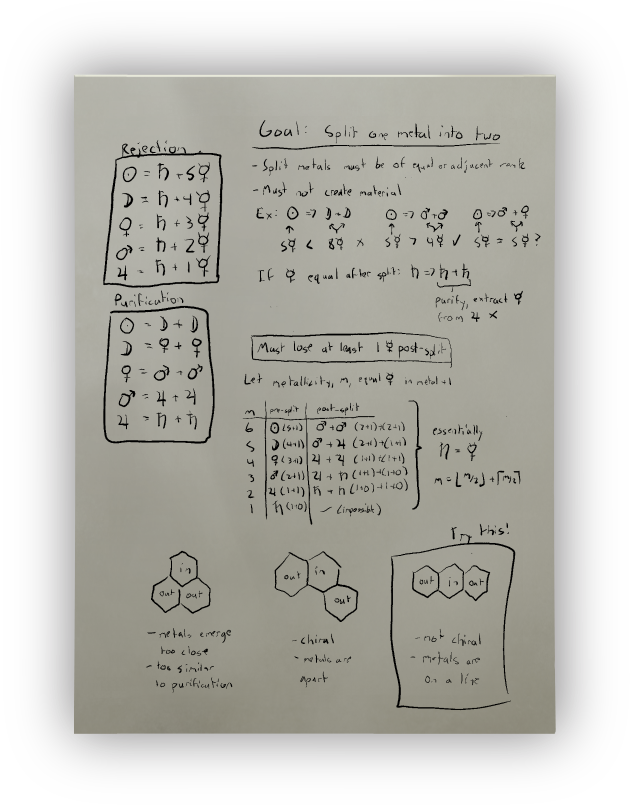 Goal: Split one metal into two
Rejection
☉ = ♄ + 5☿
☽ = ♄ + 4☿
♀ = ♄ + 3☿
♂ = ♄ + 2☿
♃ = ♄ + 1☿
- Split metals must be of equal or adjacent rank
- Must not create material
Ex: ☉ => ☽ + ☽ ☉ => ♂ + ♂ ☉ => ♂ + ♀
5☿ < 8☿ × 5☿ > 4☿ ✓ 5☿ = 5☿ ?
If ☿ equal after split: ♄ => ♄ + ♄
purify, extract ☿
from ♃ ×
Purification
☉ = ☽ + ☽
☽ = ♀ + ♀
♀ = ♂ + ♂
♂ = ♃ + ♃
♃ = ♄ + ♄
Must lose at least 1 ☿ post-split
Let metallicity, m, equal ☿ in metal +1
m pre-split post-split
6 ☉(5+1) ♂ + ♂ (2+1)+(2+1)
5 ☽(4+1) ♂ + ♃ (2+1)+(1+1)
4 ♀(3+1) ♃ + ♃ (1+1)+(1+1)
3 ♂(2+1) ♃ + ♄ (1+1)+(1+0)
2 ♃(1+1) ♄ + ♄ (1+0)+(1+0)
1 ♄(1+0) - (impossible)
essentially
♄ = ☿
m = ⌊m/2⌋ + ⌈m/2⌉
Try this!
in
out out
- metals emerge
too close
- too similar
to purification
out in
out
- chiral
- metals are
apart
out in out
- not chiral
- metals are
on a line